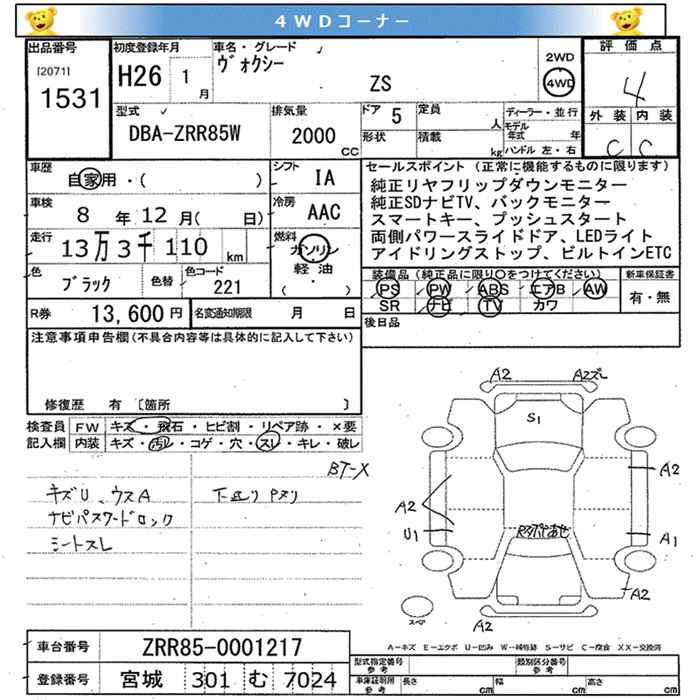 4WDコーナー
出品番号 初度登録年月 車名・グレード 評価点
[2071]
1531
H26 1月 ヴォクシー ZS 2WD 4WD 4
型式 排気量 ドア 5 定員 人 ディーラー・並行 外装 内装
DBA-ZRR85W 2000 CC 形状 積載 kg モデル年式 年 C C
ハンドル 左・右
車歴 自家用・( ) シフト IA
車検 8年12月( 日) 冷房 AAC
走行 13万3千110 km 燃料 ガソリン 軽油 ( )
色 ブラック 色替 色コード 221
R券 13,600円 名変通知期限 月 日
セールスポイント (正常に機能するものに限ります)
純正リヤフリップダウンモニター
純正SDナビTV、バックモニター
スマートキー、プッシュスタート
両側パワースライドドア、LEDライト
アイドリングストップ、ビルトインETC
装備品(純正品に限り○をつけてください) 新車保証書
PS PW ABS エアB AW 有・無
SR ナビ TV カワ
後日品
注意事項申告欄(不具合内容等は具体的に記入して下さい)
修復歴 有 〔箇所 〕
検査員記入欄 FW キズ・飛石・ヒビ割・リペア跡・×要
内装 キズ・汚レ・コゲ・穴・スレ・キレ・破レ
BT-X
キズU、ウスA
ナビパスワードロック
シートスレ
A2 A2ズレ
S1
A2
A2
U1 A1
A2
スペア A2
A-キズ E-エクボ U-凹み W-補修跡 S-サビ C-腐食 XX-交換済
車台番号 ZRR85-0001217
登録番号 宮城 301 む 7024
型式指定番号 参考 類別区分番号 参考
車庫証明用 参考 長さ cm 幅 cm 高さ cm